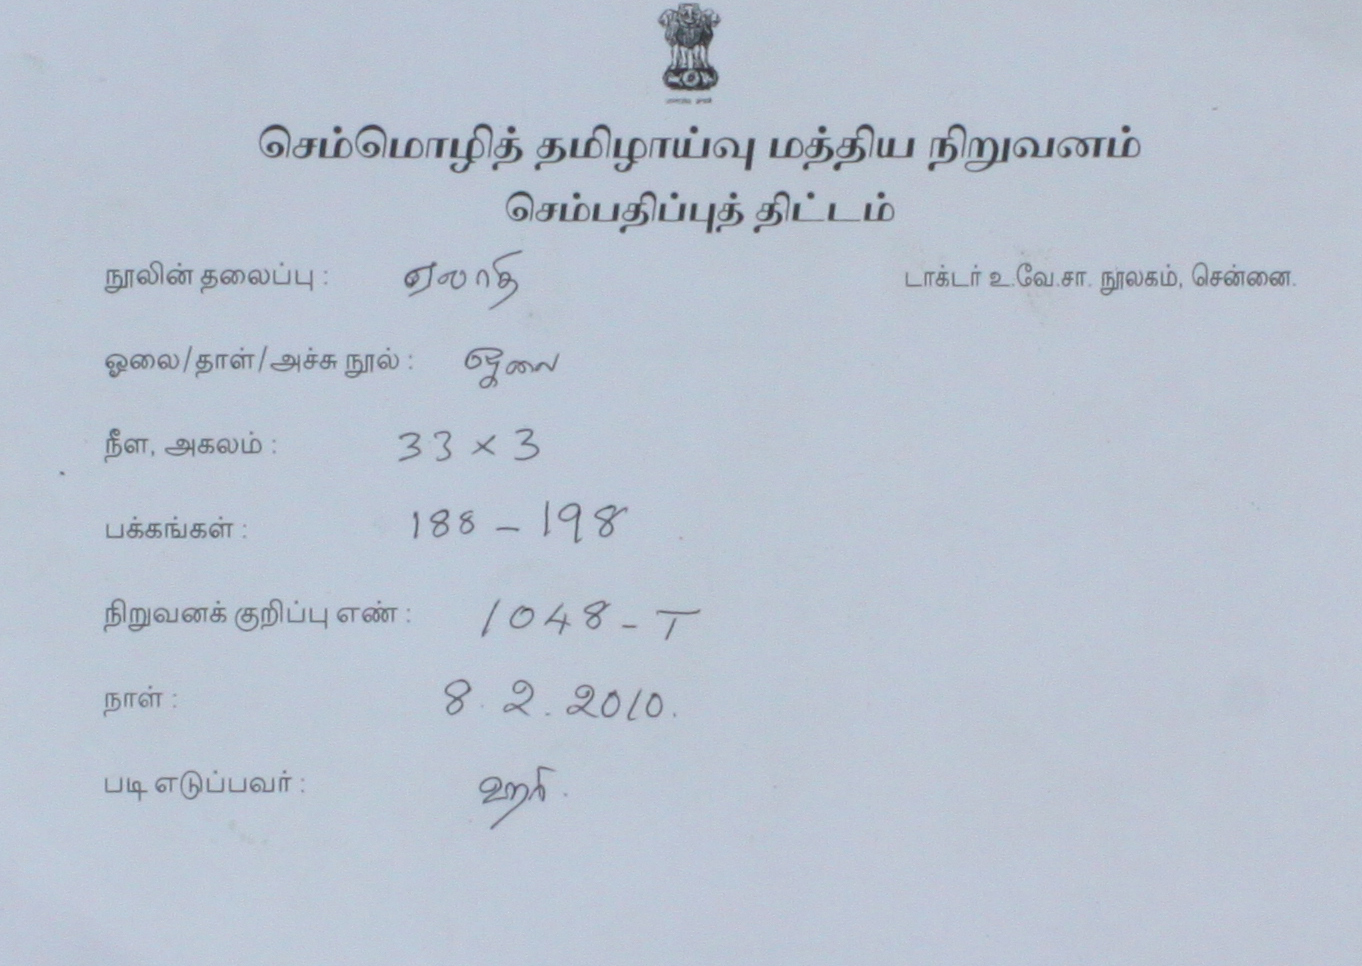 செம்மொழித் தமிழாய்வு மத்திய நிறுவனம்
செம்பதிப்புத் திட்டம்
நூலின் தலைப்பு : ஏலாதி டாக்டர் உ.வே.சா. நூலகம், சென்னை.
ஓலை/தாள்/அச்சு நூல் : ஓலை
நீள, அகலம் : 33 x 3
பக்கங்கள் : 188 - 198
நிறுவனக் குறிப்பு எண் : 1048 - T
நாள் : 8. 2. 2010.
படி எடுப்பவர் : ஹரி.